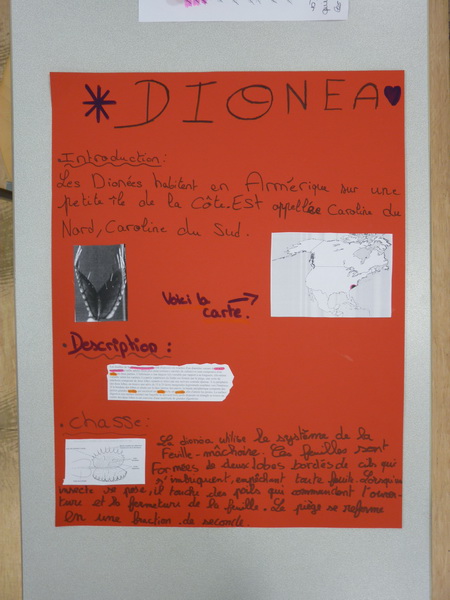 DIONEA
Introduction:
Les Dionées habitent en Amérique sur une
petite île de la Côte.Est appellée Caroline du
Nord, Caroline du Sud.
Voici la
carte.
• Description :
• Chasse:
La dionéa utilise le système de la
Feuille-mâchoire. Ces feuilles sont
Formées de deux lobes bordés de cils qui
s'imbriquent, empêchant toute fuite. Lorsqu'un
insecte se pose, il touche des poils qui commandent l'ouver-
ture et la fermeture de la feuille. Le piège se referme
En une fraction de seconde.